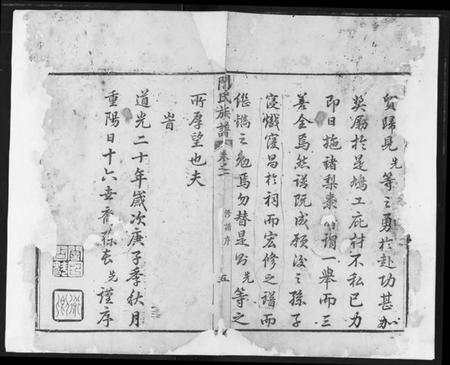 貿歸見先等之勇於赴功甚加
奬勵於是鳩工庇材不私已力
即日施諸梨棗所謂一舉而三
善全焉然譜既成願後之孫子
寖熾寖昌於祠而宏修之譜而
繼檇之勉焉勿替是則先等之
所厚望也夫
旹
道光二十年歲次庚子季秋月
重陽日十六世裔孫長先謹序
閆氏族譜 卷之一 修譜序 五